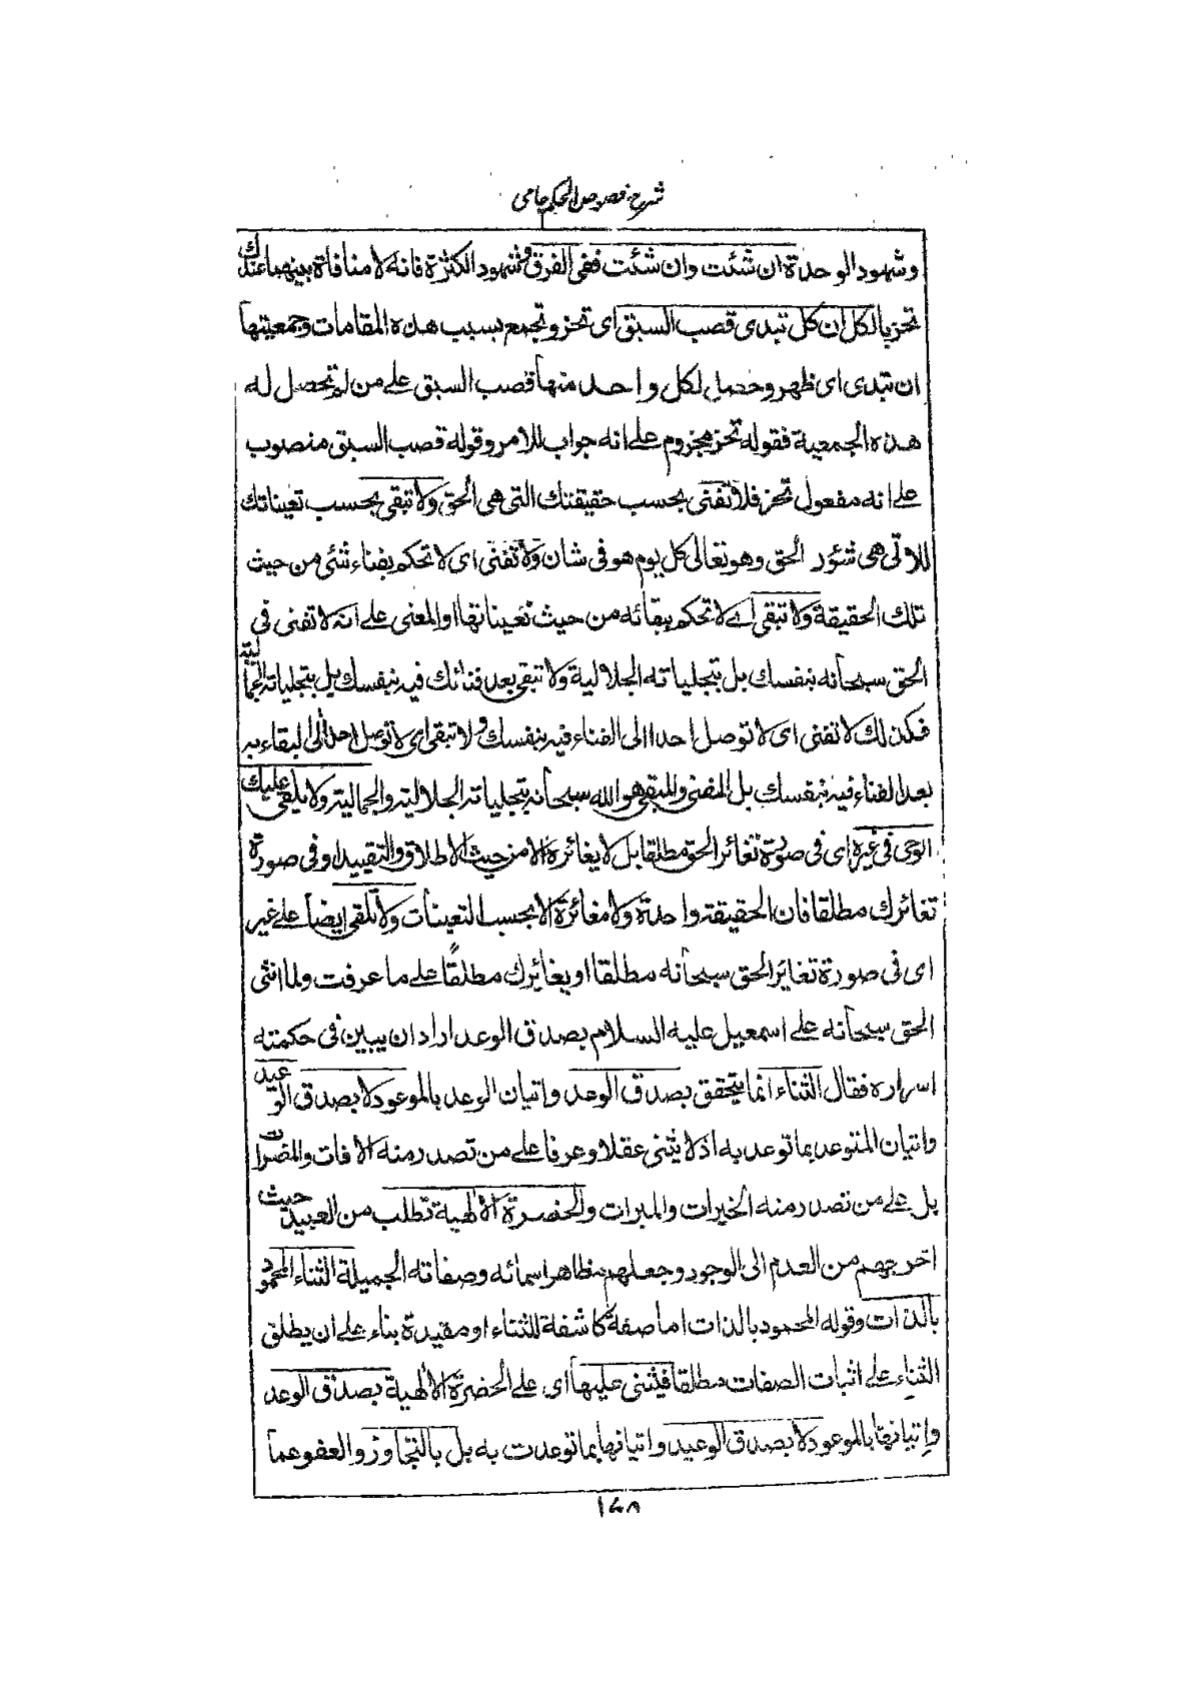 شرح فصوص الحكم جامى
وشهود الوحدة ان شئت وان شئت ففى الفرق وشهود الكثرة فانه لا منافاة بينهما عندك
تحز بالكل ان كل تبدى قصب السبق اى تحز وتجمع بسبب هذه المقامات وجمعيتها
ان تبدى اى ظهر وحصل لكل واحد منها قصب السبق على من لم تحصل له
هذه الجمعية فقوله تحز مجزوم على انه جواب للامر وقوله قصب السبق منصوب
على انه مفعول تحز فلا تفنى بحسب حقيقتك التى هى الحق ولا تبقى بحسب تعيناتك
للاتى هى شئور الحق وهو تعالى كل يوم هو فى شان ولا تفنى اى لا تحكم بفناء شئ من حيث
تلك الحقيقة ولا تبقى اے لا تحكم ببقائه من حيث تعيناتها او المعنى على انه لا تفنى فى
الحق سبحانه بنفسك بل بتجلياته الجلالية ولا تبقى بعد فنائك فيه بنفسك بل بتجلياته الجمالية
فكذلك لا تفنى اى لا توصل احدا الى الفناء فيه بنفسك ولا تبقى اى لا توصل احدا الى البقاء به
بعد الفناء فيه بنفسك بل المفنى والمبقى هو الله سبحانه بتجلياته الجلاليه والجماليته ولا يلقى عليك
الوحى فى غيره اى فى صورة تغائر الحق مطلقا بل لا يغائره الا من حيث الاطلاق والتقييد او فى صورة
تغائرك مطلقا فان الحقيقة واحدة ولا مغائرة الا بحسب التعينات ولا تلقى ايضا على غير
اى فى صورة تغاير الحق سبحانه مطلقا او يغائرك مطلقًا على ما عرفت ولما اثنى
الحق سبحانه على اسمعيل عليه السلام بصدق الوعد اراد ان يبين فى حكمته
اسراره فقال الثناء انما يتحقق بصدق الوعد واتيان الوعد بالموعود لا بصدق الوعيد
واتيان المتوعد بما توعد به اذ لا يثنى عقلا وعرفا على من تصدر منه الافات والمضرات
بل على من تصدر منه الخيرات والمبرات والحضرة الالهية تطلب من العبيد حيث
اخرجهم من العدم الى الوجود وجعلهم مظاهر اسمائه وصفاته الجميلة الثناء المحمود
بالذات وقوله المحمود بالذات اما صفة كاشفة للثناء او مقيدة بناء على ان يطلق
الثناء على اثبات الصفات مطلقا فيثنى عليها اى على الحضرة الالهية بصدق الوعد
واتيانها بالموعود لا بصدق الوعيد واتيانها بما توعدت به بل بالتجاوز والعفو عما